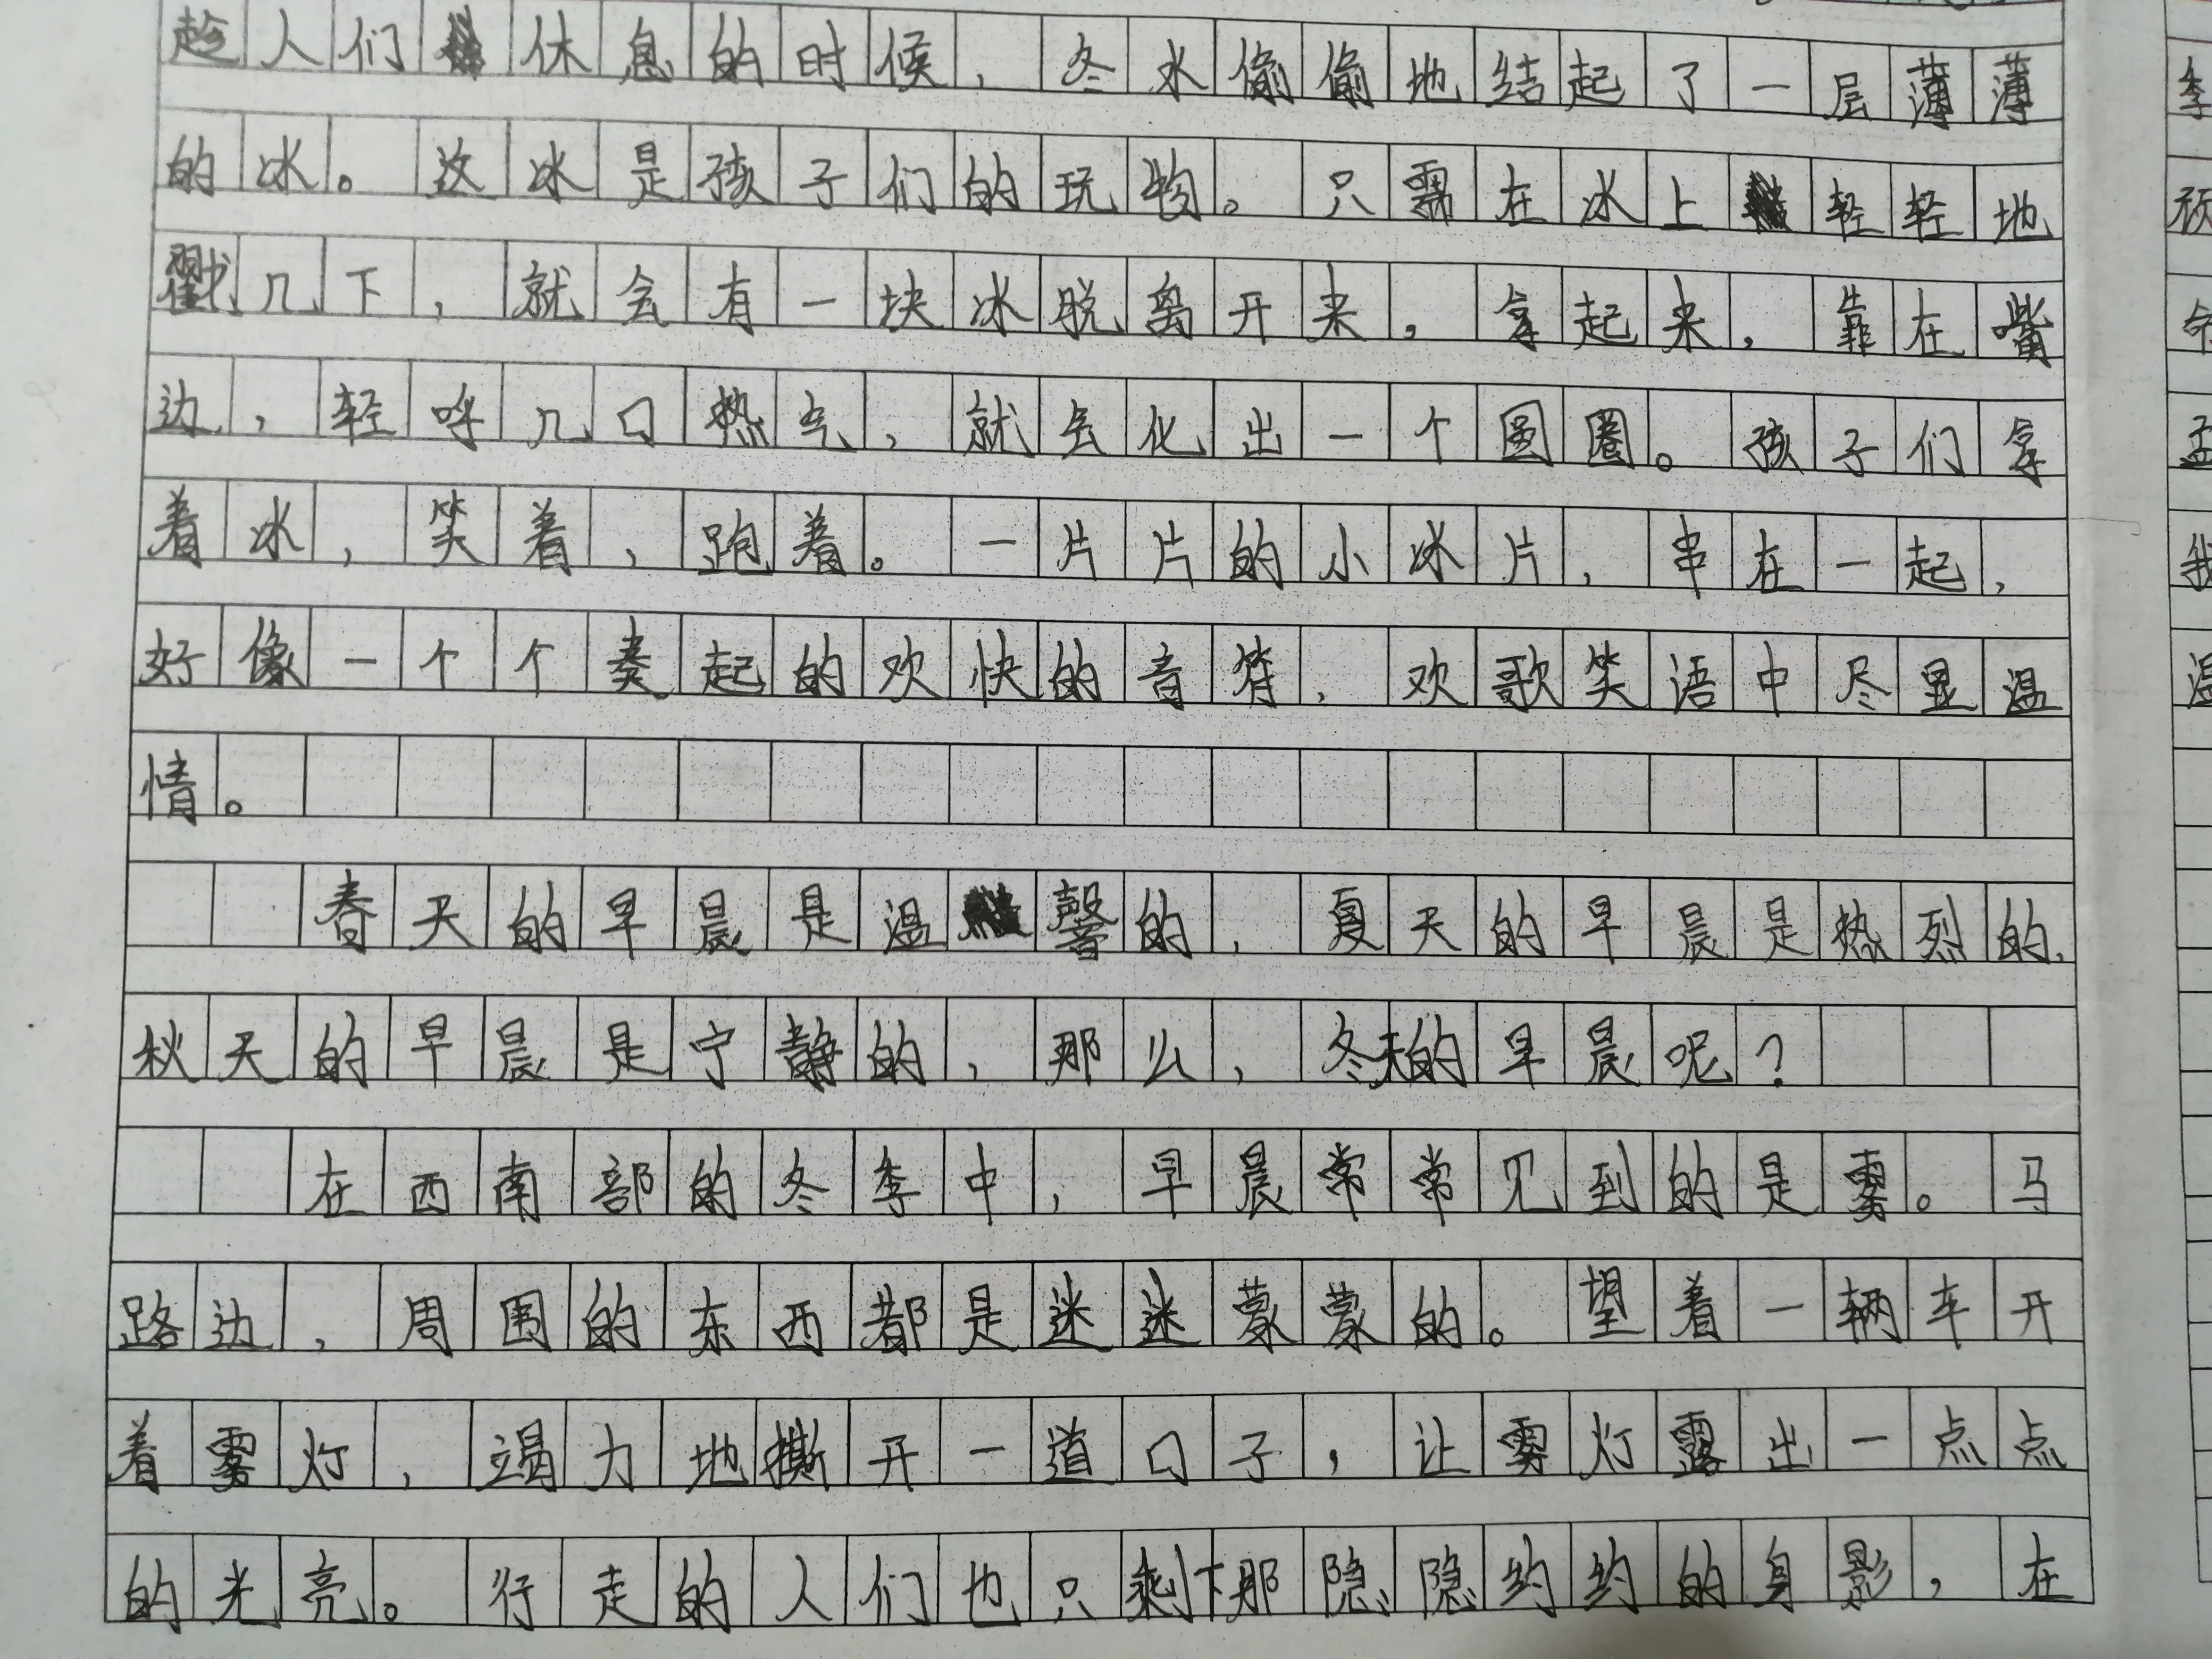 趁人们休息的时候，冬水偷偷地结起了一层薄薄
的冰。这冰是孩子们的玩物。只需在冰上轻轻地
戳几下，就会有一块冰脱离开来，拿起来，靠在嘴
边，轻呼几口热气，就会化出一个圆圈。孩子们拿
着冰，笑着，跑着。一片片的小冰片，串在一起，
好像一个个奏起的欢快的音符，欢歌笑语中尽显温
情。
春天的早晨是温馨的，夏天的早晨是热烈的，
秋天的早晨是宁静的，那么，冬天的早晨呢？
在西南部的冬季中，早晨常常见到的是雾。马
路边，周围的东西都是迷迷蒙蒙的。望着一辆车开
着雾灯，竭力地撕开一道口子，让雾灯露出一点点
的光亮。行走的人们也只剩下那隐隐约约的身影，在